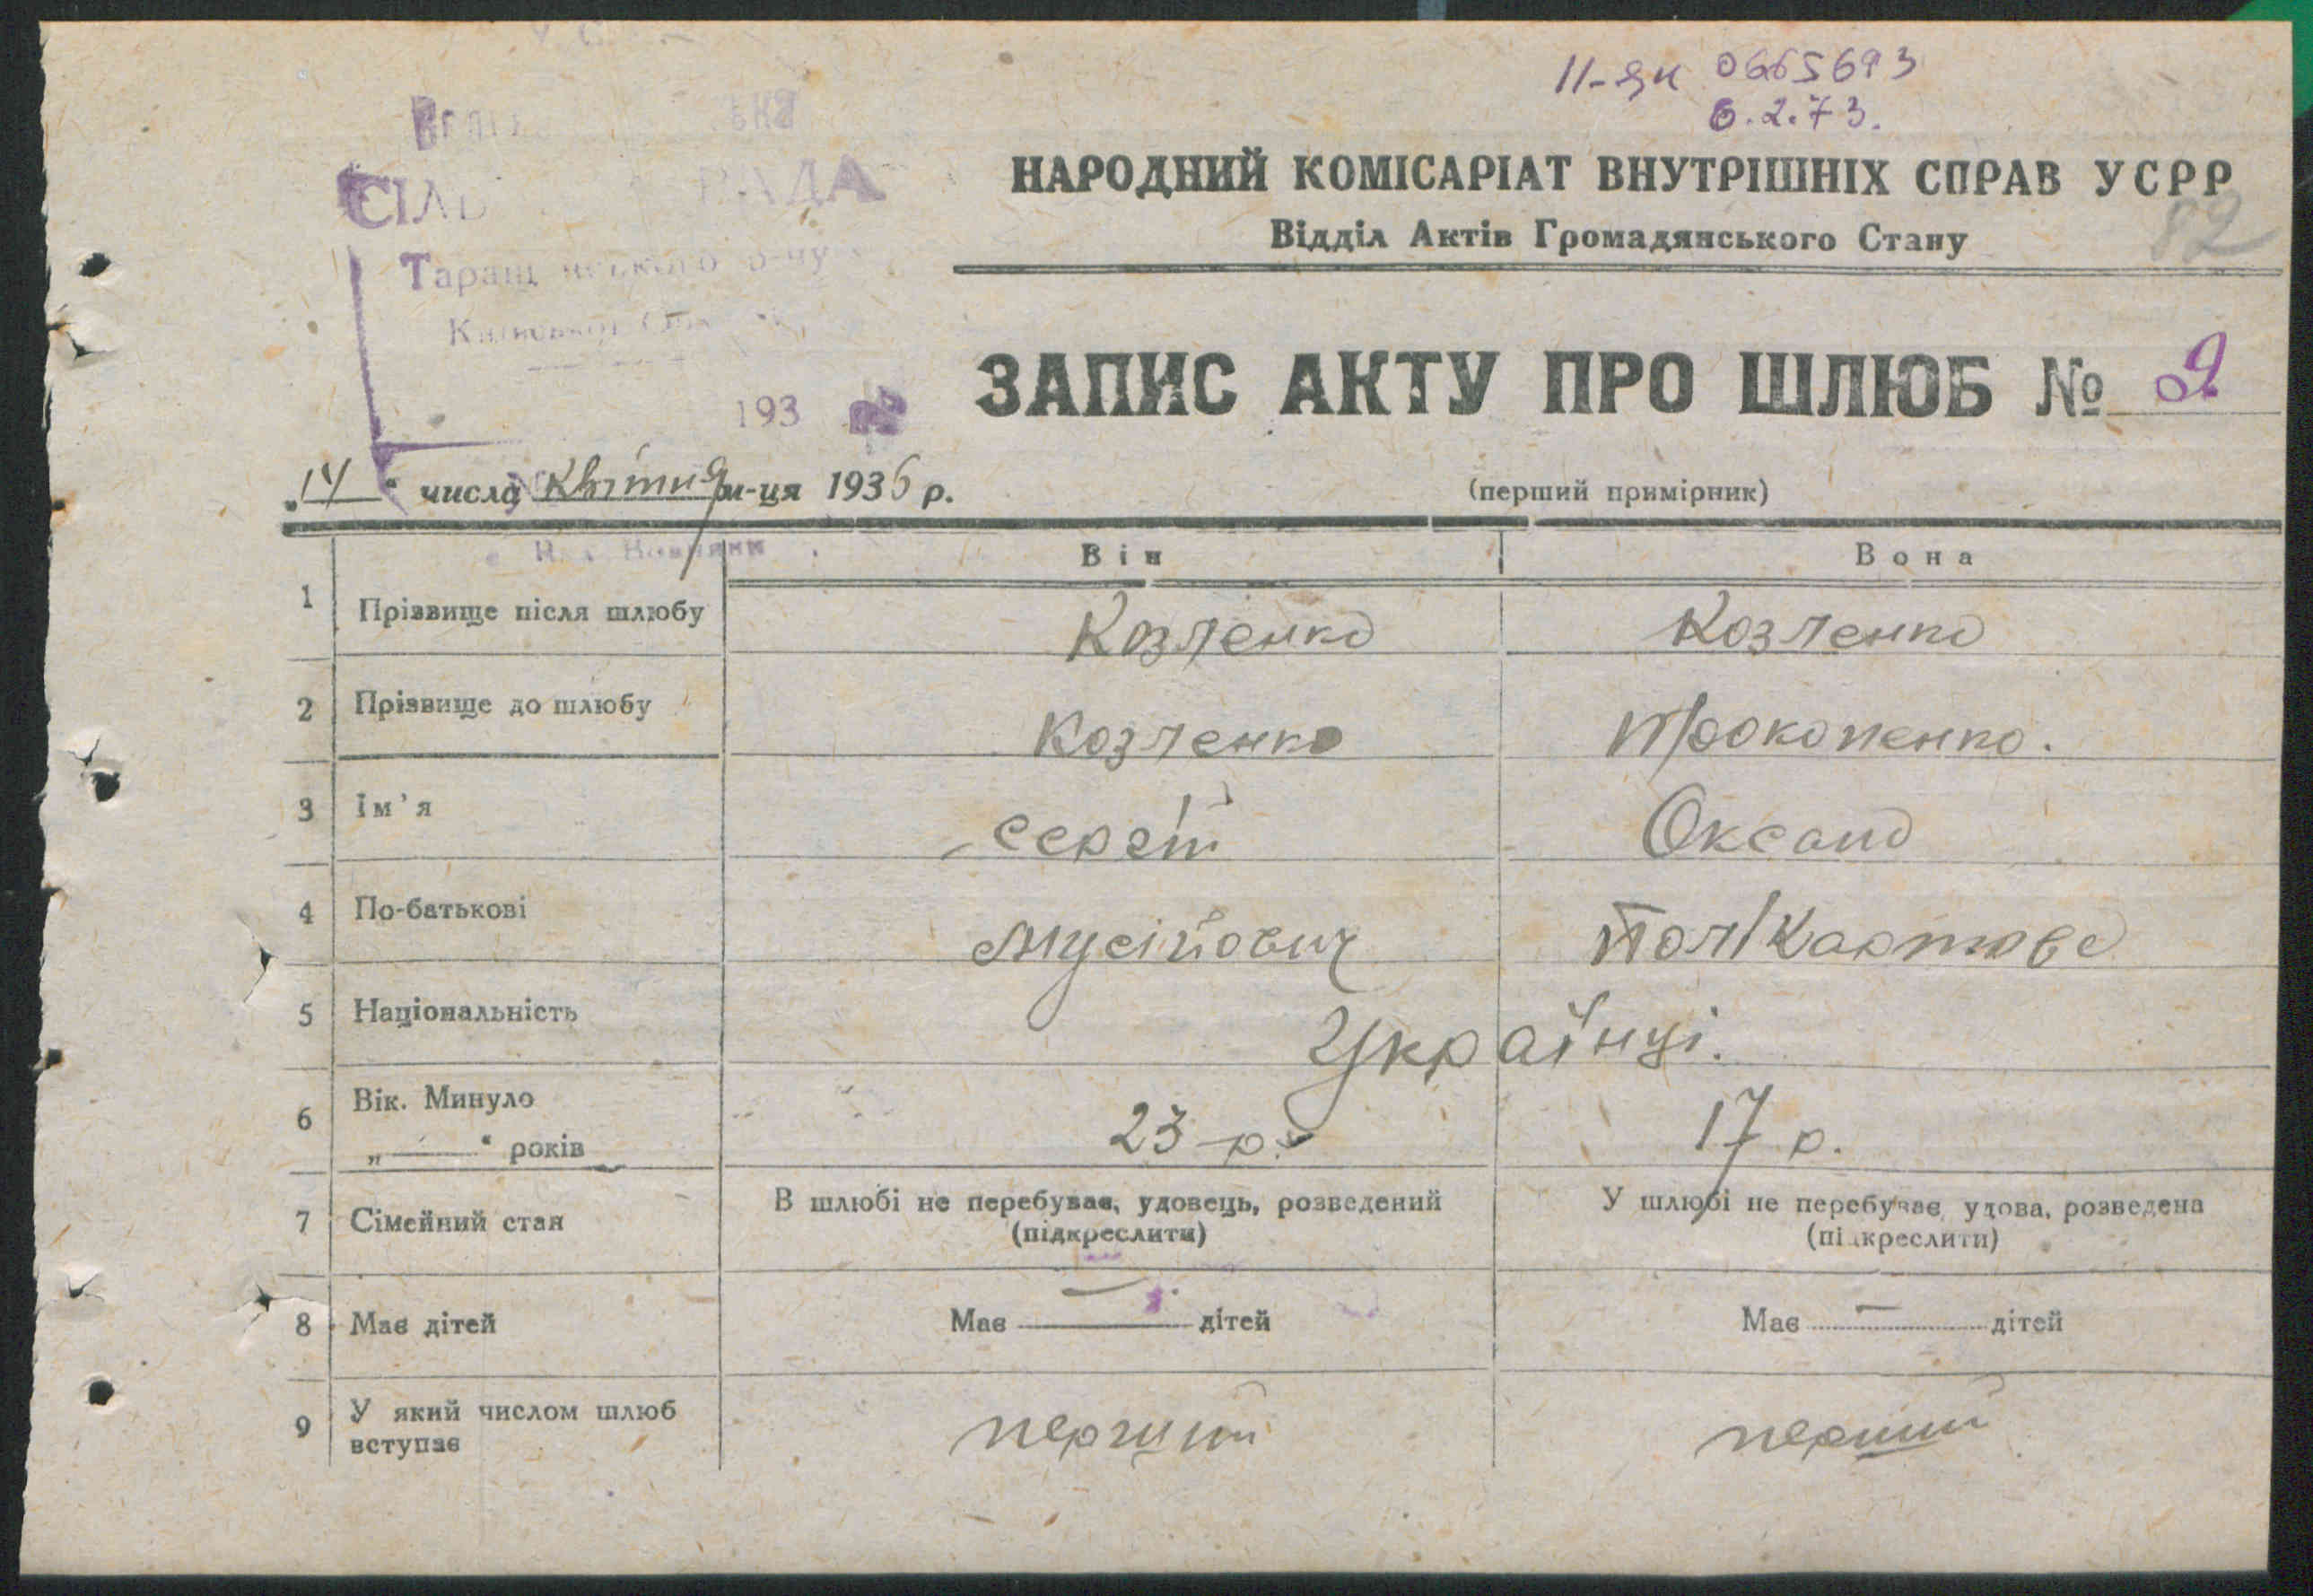 II-ЯК 0665693
6.2.73.
СІЛЬ РАДА
НАРОДНИЙ КОМІСАРІАТ ВНУТРІШНІХ СПРАВ УСРР
82
Відділ Актів Громадянського Стану
Таращанського р-ну
Київської
ЗАПИС АКТУ ПРО ШЛЮБ № 9
193
„14“ числа Квітня м-ця 1936 р.
(перший примірник)
Він Вона
1 Прізвище після шлюбу Козленко Козленко
2 Прізвище до шлюбу Козленко Прокопенко.
3 Ім'я Сергій Оксана
4 По-батькові Мусійович Полікарповa
5 Національність Українці.
6 Вік. Минуло
„—“ років 23 р. 17 р.
7 Сімейний стан В шлюбі не перебуває, удовець, розведений У шлюбі не перебуває, удова, розведена
(підкреслити) (підкреслити)
8 Має дітей Має — дітей Має — дітей
9 У який числом шлюб
вступає перший перший